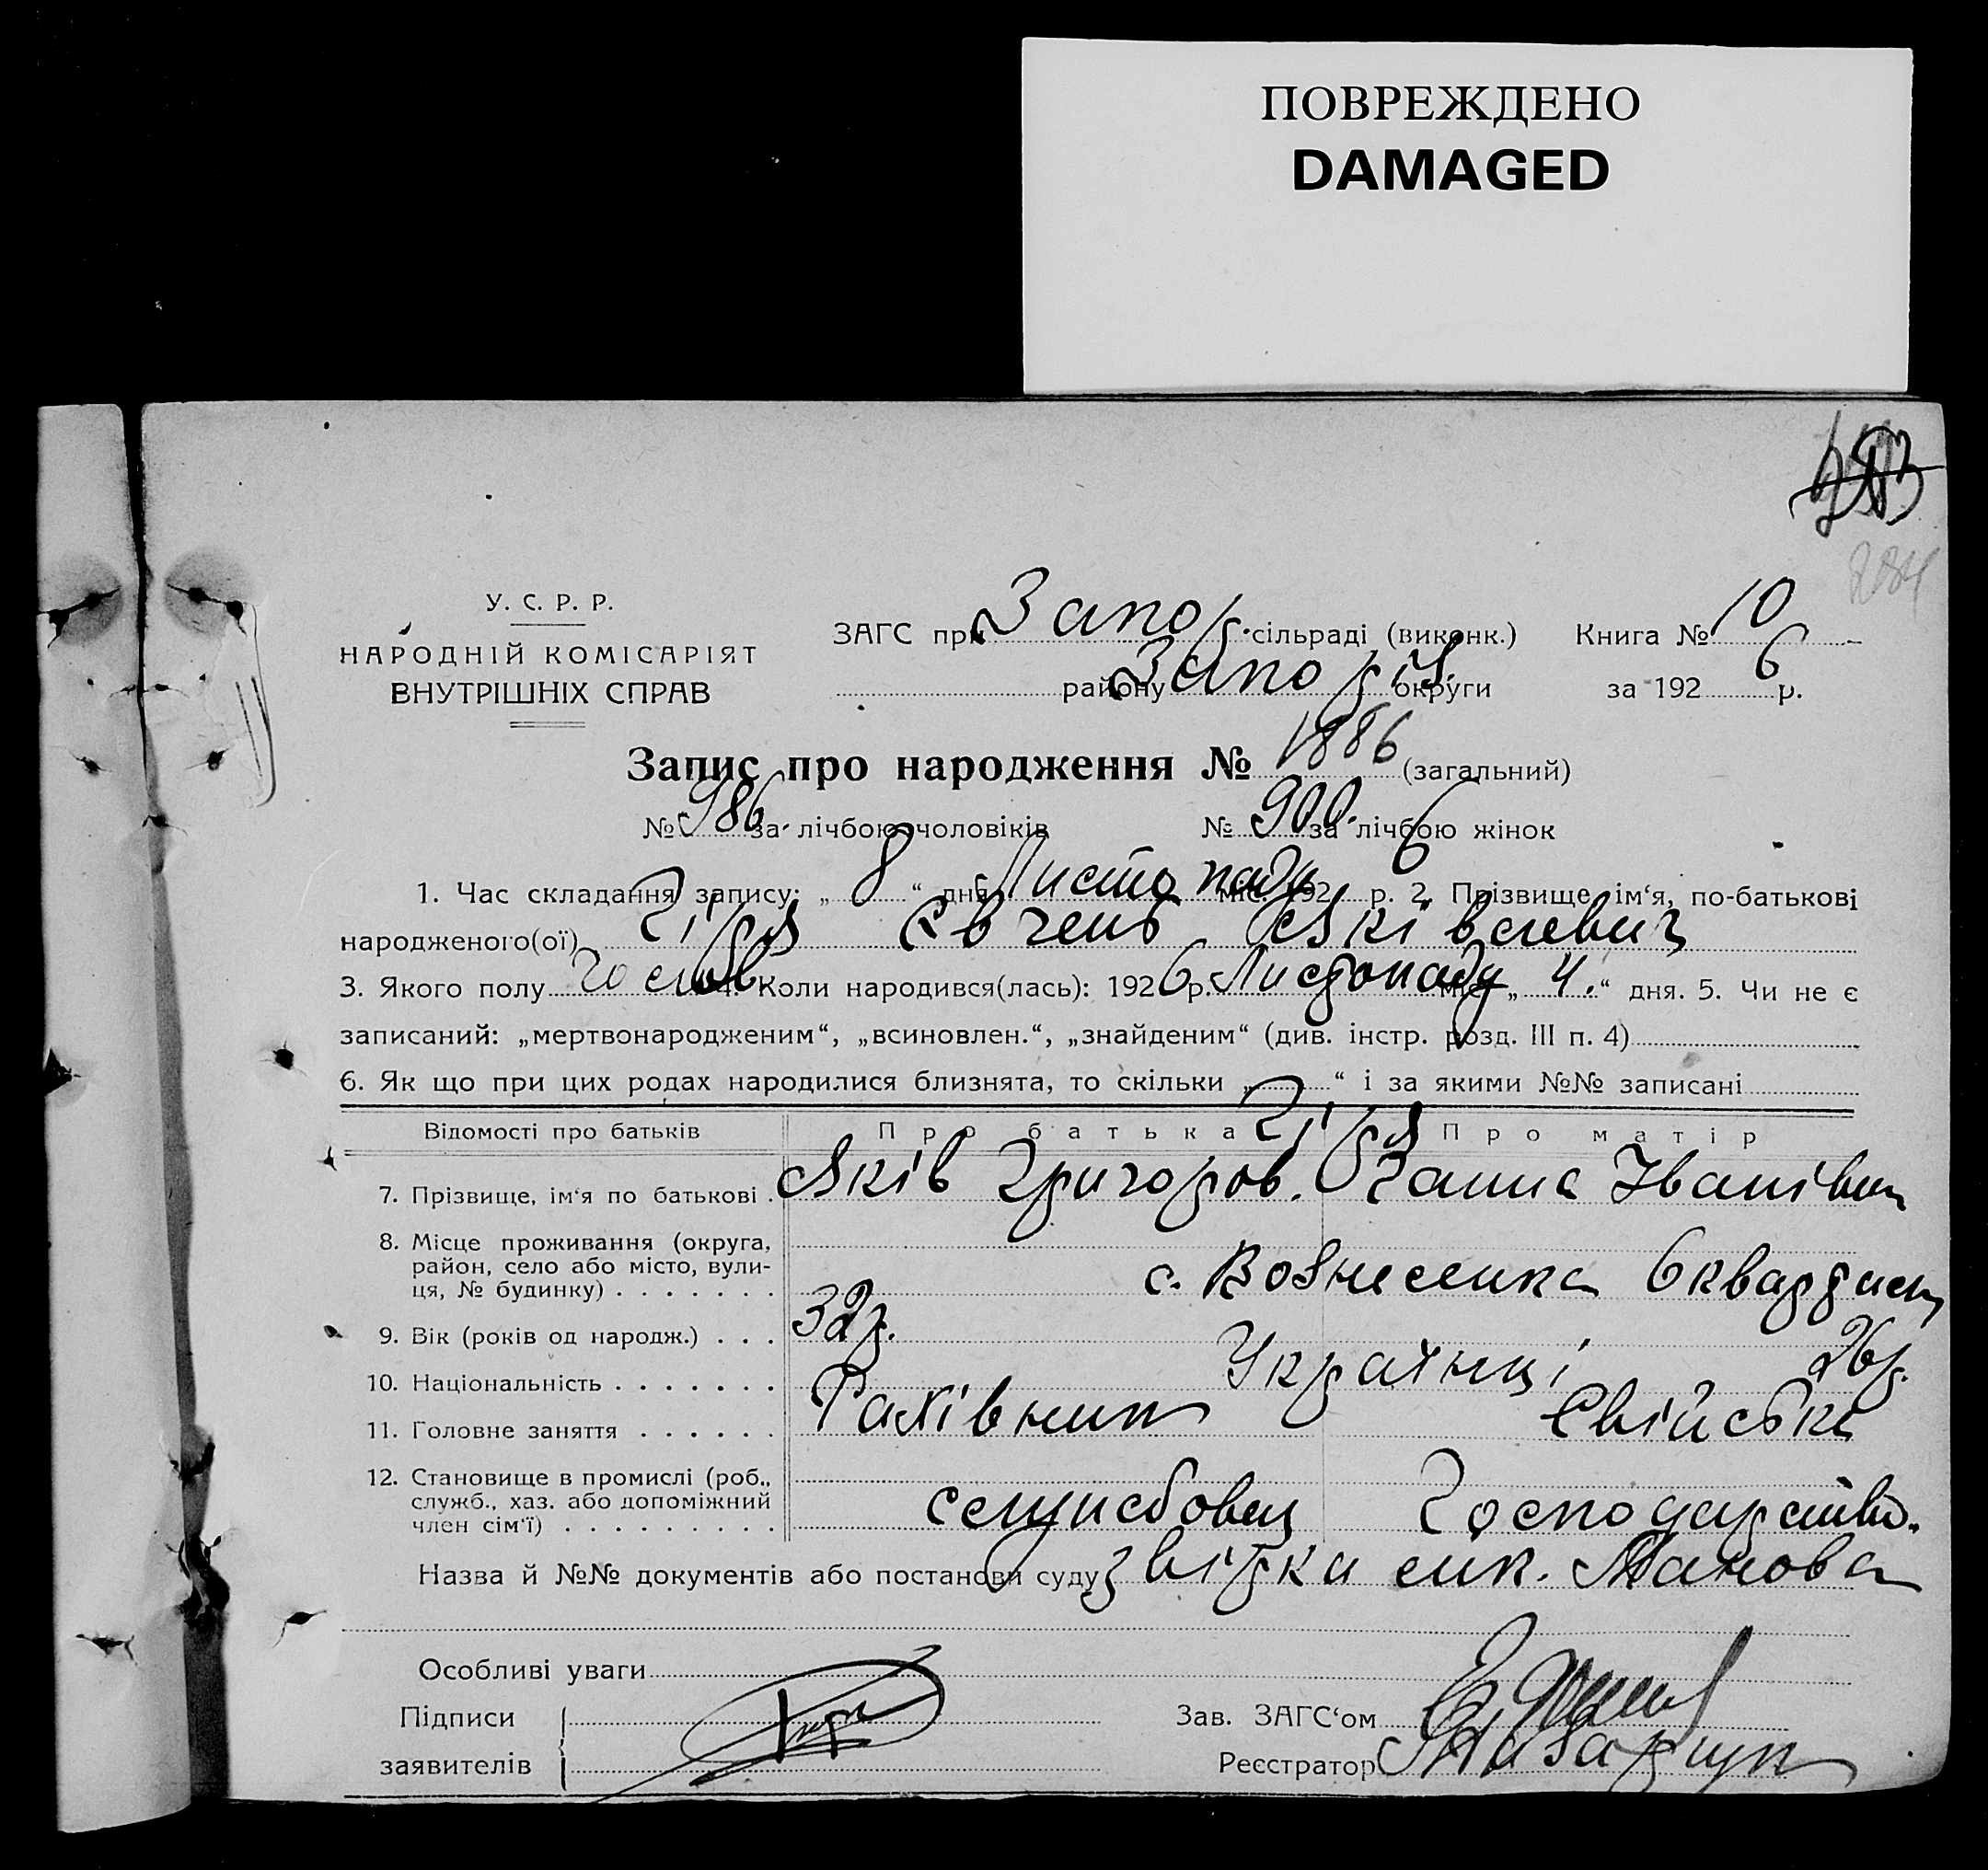 ПОВРЕЖДЕНО
DAMAGED
У. С. Р. Р.
НАРОДНІЙ КОМІСАРІЯТ
ВНУТРІШНІХ СПРАВ
ЗАГС при Запор. сільраді (виконк.) Книга № 10
району Запоріз. округи за 1926 р.
Запис про народження № 1886 (загальний)
№ 986 за лічбою чоловіків № 900. за лічбою жінок
1. Час складання запису: „ 8 “ дня Листопаду міс. 1926 р. 2. Прізвище, ім‘я, по-батькові
народженого(ої) Євгень Яківлевич
3. Якого полу 4. Коли народився(лась): 1926 р. Листопаду міс. „ 4. “ дня. 5. Чи не є
записаний: „мертвонародженим“, „всиновлен.“, „знайденим“ (див. інстр. розд. III п. 4)
6. Як що при цих родах народилися близнята, то скільки „ “ і за якими №№ записані
Відомості про батьків Про батька Про матір
7. Прізвище, ім‘я по батькові Яків Григоров. Ганна Іванівна
8. Місце проживання (округа,
район, село або місто, вули-
ця, № будинку) с. Вознесенка 6 квартал
9. Вік (років од народж.) 32 р. 26 р.
10. Національність Українці
11. Головне заняття Рахівник Свійське
12. Становище в промислі (роб.,
служб., хаз. або допоміжний
член сім‘ї) службовец Господарство.
Назва й №№ документів або постанови суду
Особливі уваги
Підписи
заявителів
Зав. ЗАГС‘ом
Реєстратор